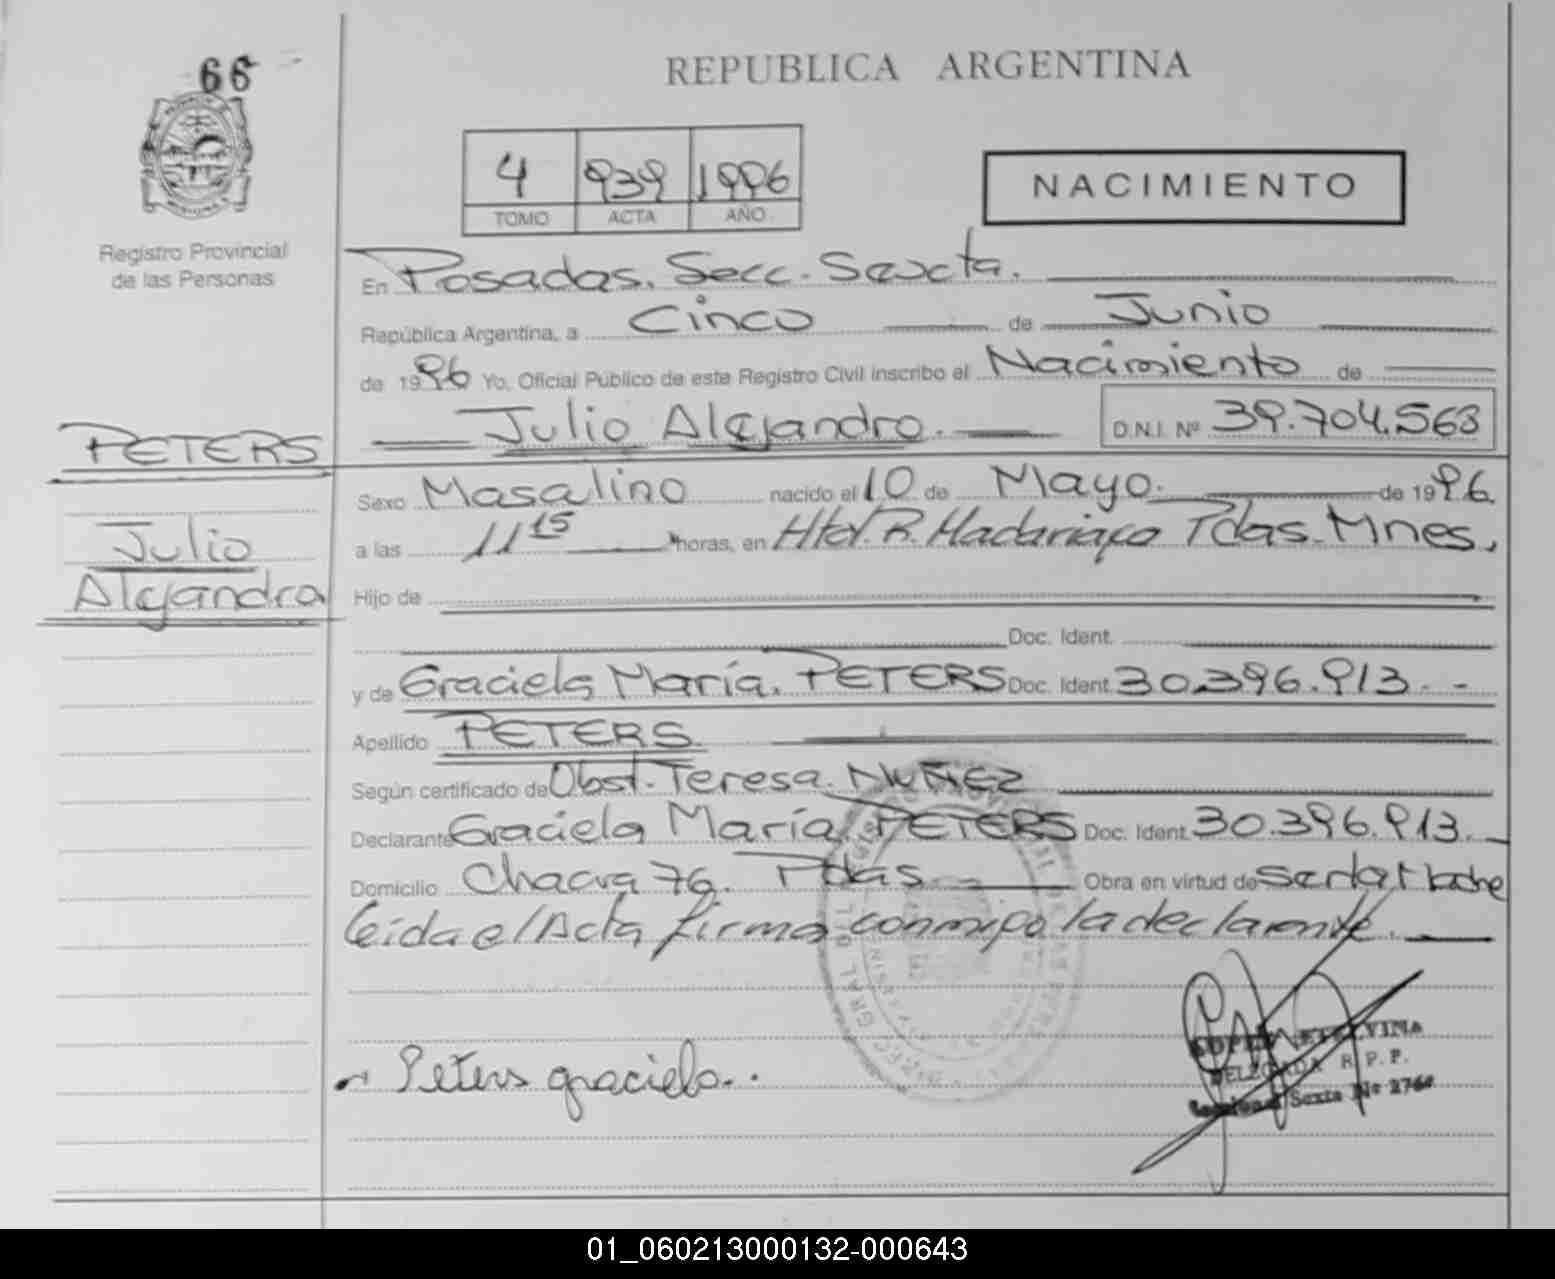 66
REPUBLICA ARGENTINA
4 939 1996
TOMO ACTA AÑO
NACIMIENTO
Registro Provincial
de las Personas
En Posadas. Secc. Sexcta.
República Argentina, a Cinco de Junio
de 1996 Yo, Oficial Público de este Registro Civil inscribo el Nacimiento de
Julio Alejandro. D.N.I. Nº 39.704.563
PETERS
Julio
Alejandro
Sexo Masalino nacido el 10 de Mayo. de 1996.
a las 11 15 horas, en Htal. R. Madariaga Pdas. Mnes.
Hijo de
Doc. Ident.
y de Graciela María. PETERS Doc. Ident 30.396.913.-
Apellido PETERS
Según certificado de Obst. Teresa. NUÑEZ
Declarante Graciela María. PETERS Doc. Ident 30.396.913.
Domicilio Chacra 76. Pdas. Obra en virtud de ser la Madre
leída el Acta firma conmigo la declarante.
Peters graciela..
DELEGADA R.P.P.
Sexta Nº
01_060213000132-000643